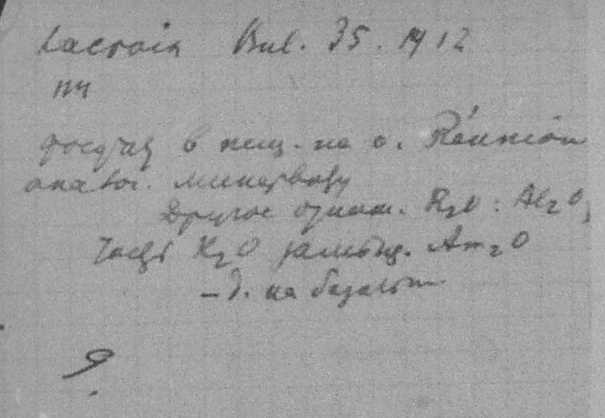 Lacroix Bul. 35. 1912
114
фосфат в пещ. на о. Réunion
аналог. минервиту
Другое отнош. R₂O : Al₂O₃
Часть K₂O замещ. Am₂O
– д. на базальт